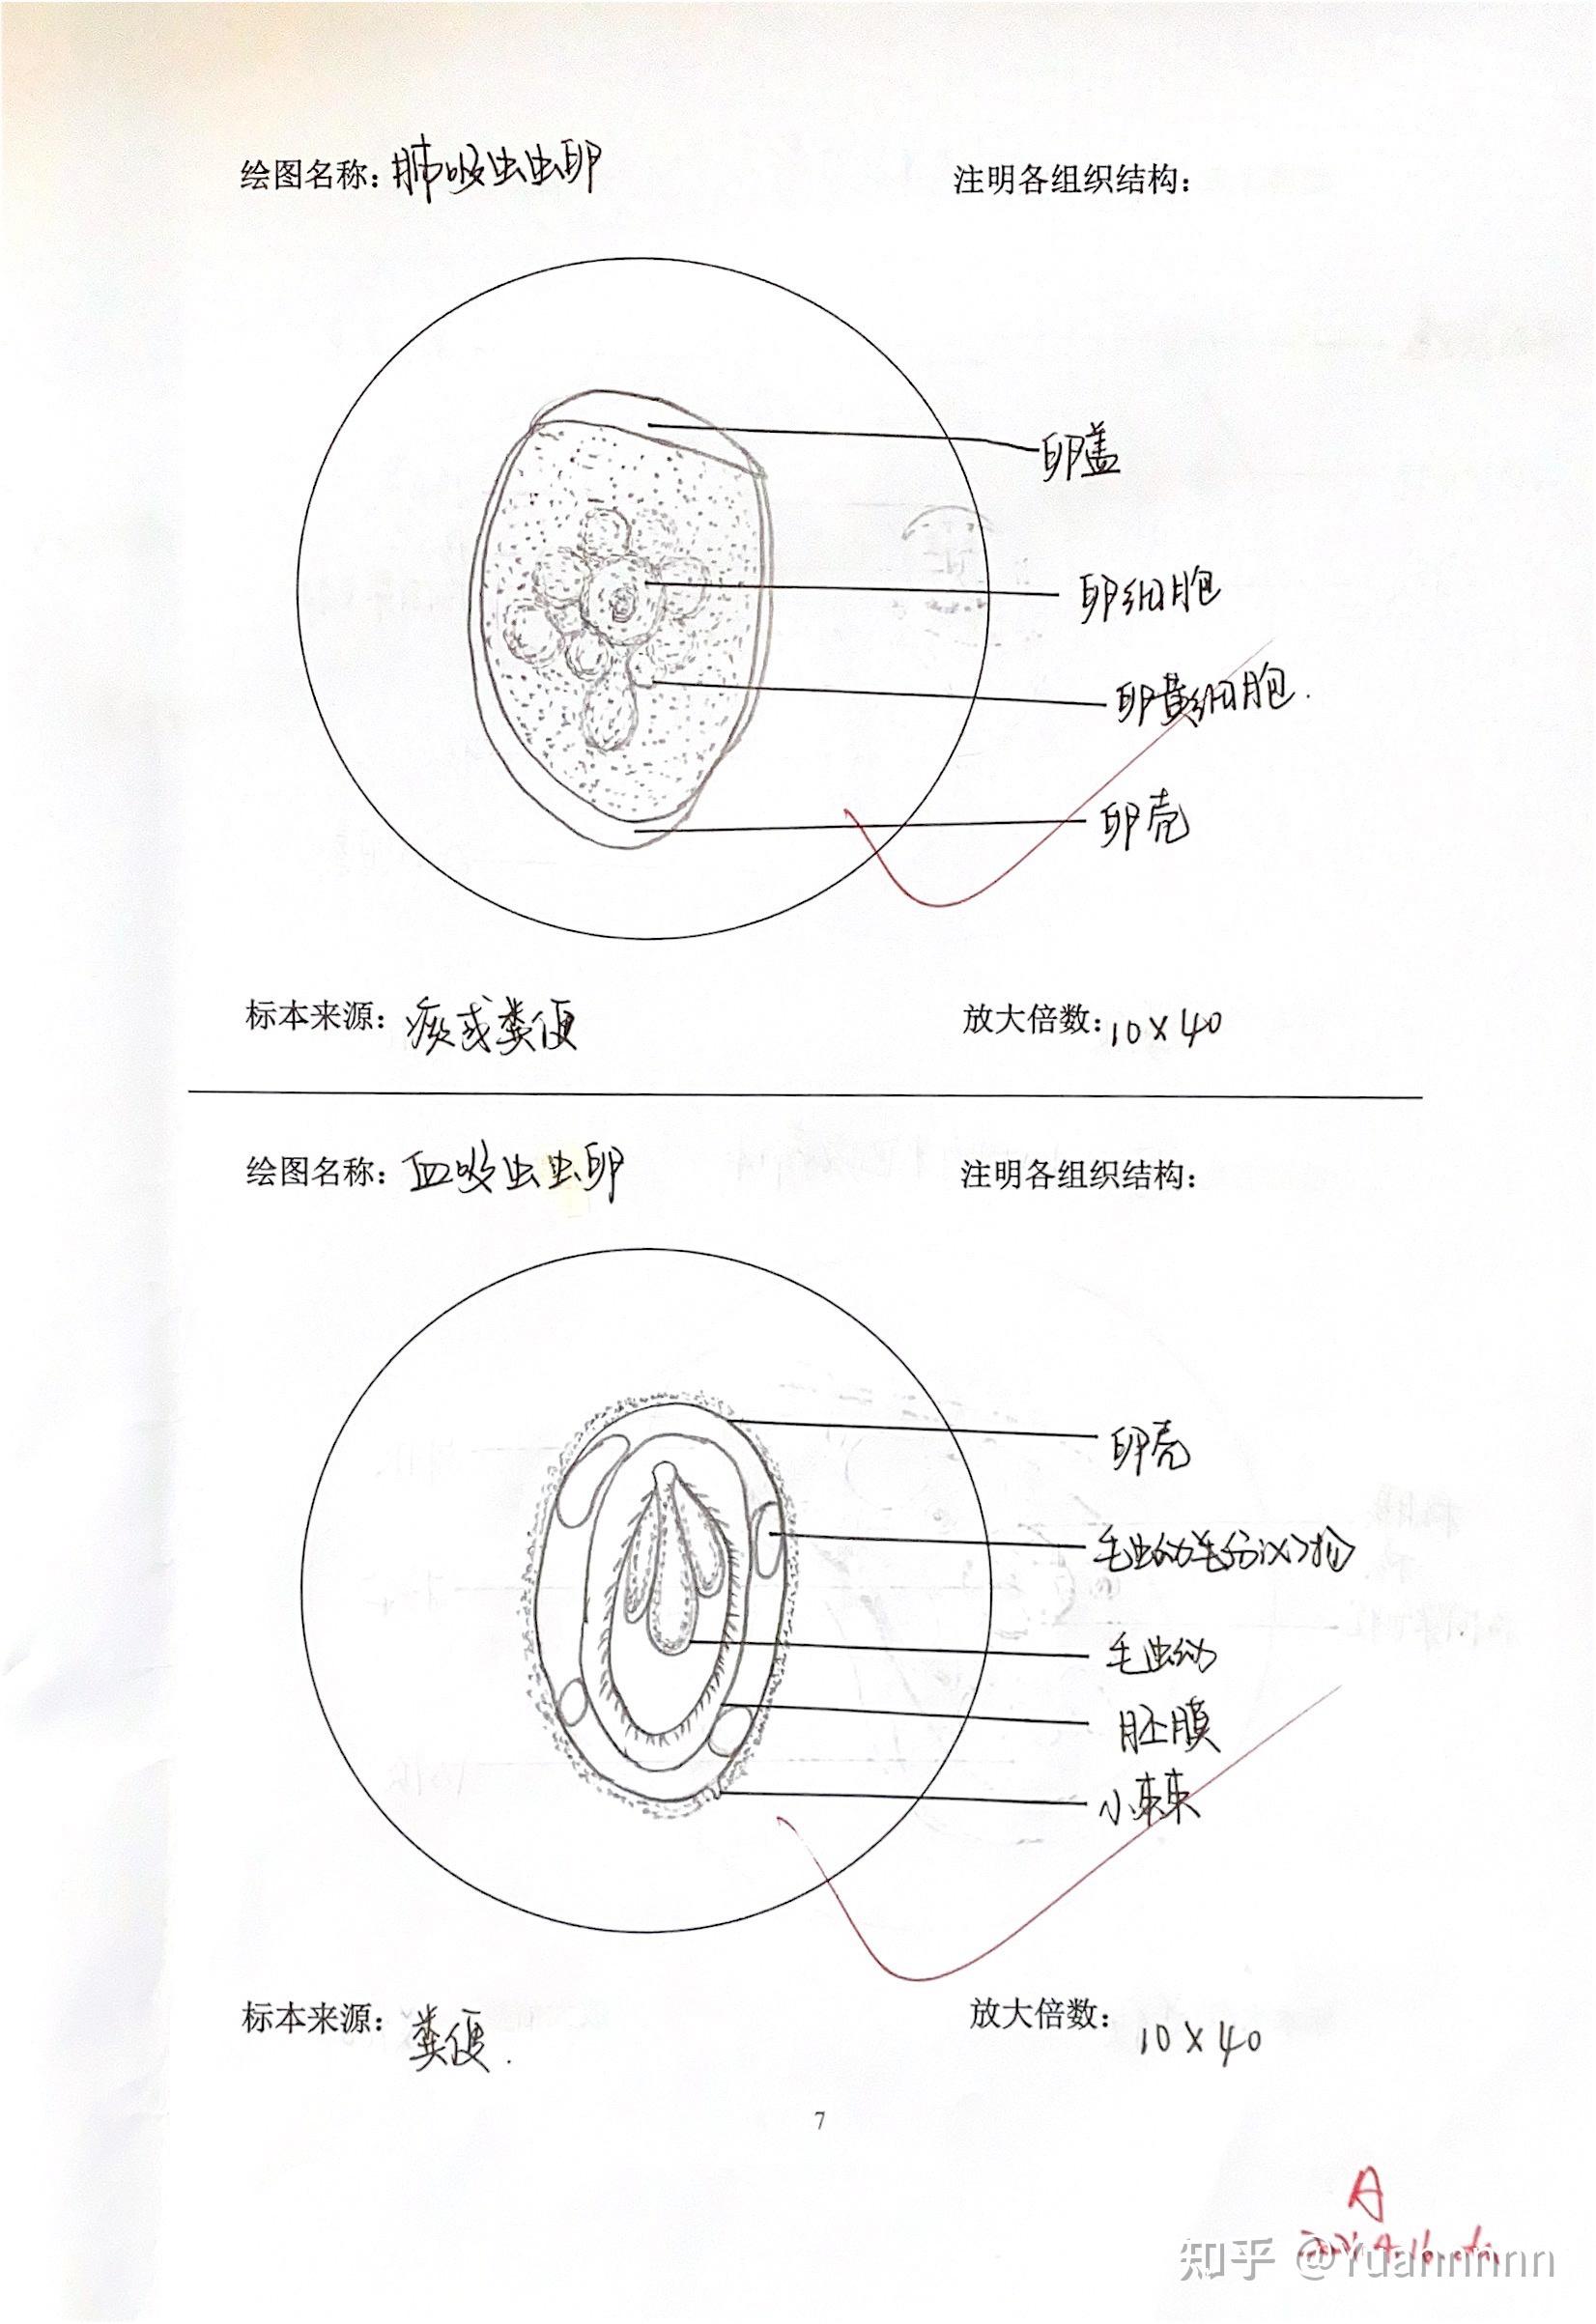 绘图名称：肺吸虫虫卵
注明各组织结构：
卵盖
卵细胞
卵黄细胞.
卵壳
标本来源：痰或粪便
放大倍数：10×40
绘图名称：血吸虫虫卵
注明各组织结构：
卵壳
毛虫幼
胚膜
小棘
标本来源：粪便.
放大倍数：10×40
7
A
知乎 @Yuannnnn